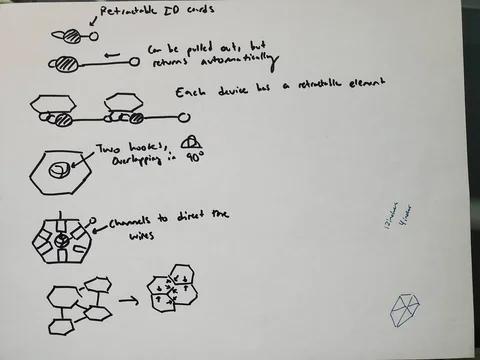 Retractable ID cards
Can be pulled out, but
returns automatically
Each device has a retractable element
Two hooks,
overlapping in 90°
Channels to direct the
wires
12 inches
4 inches